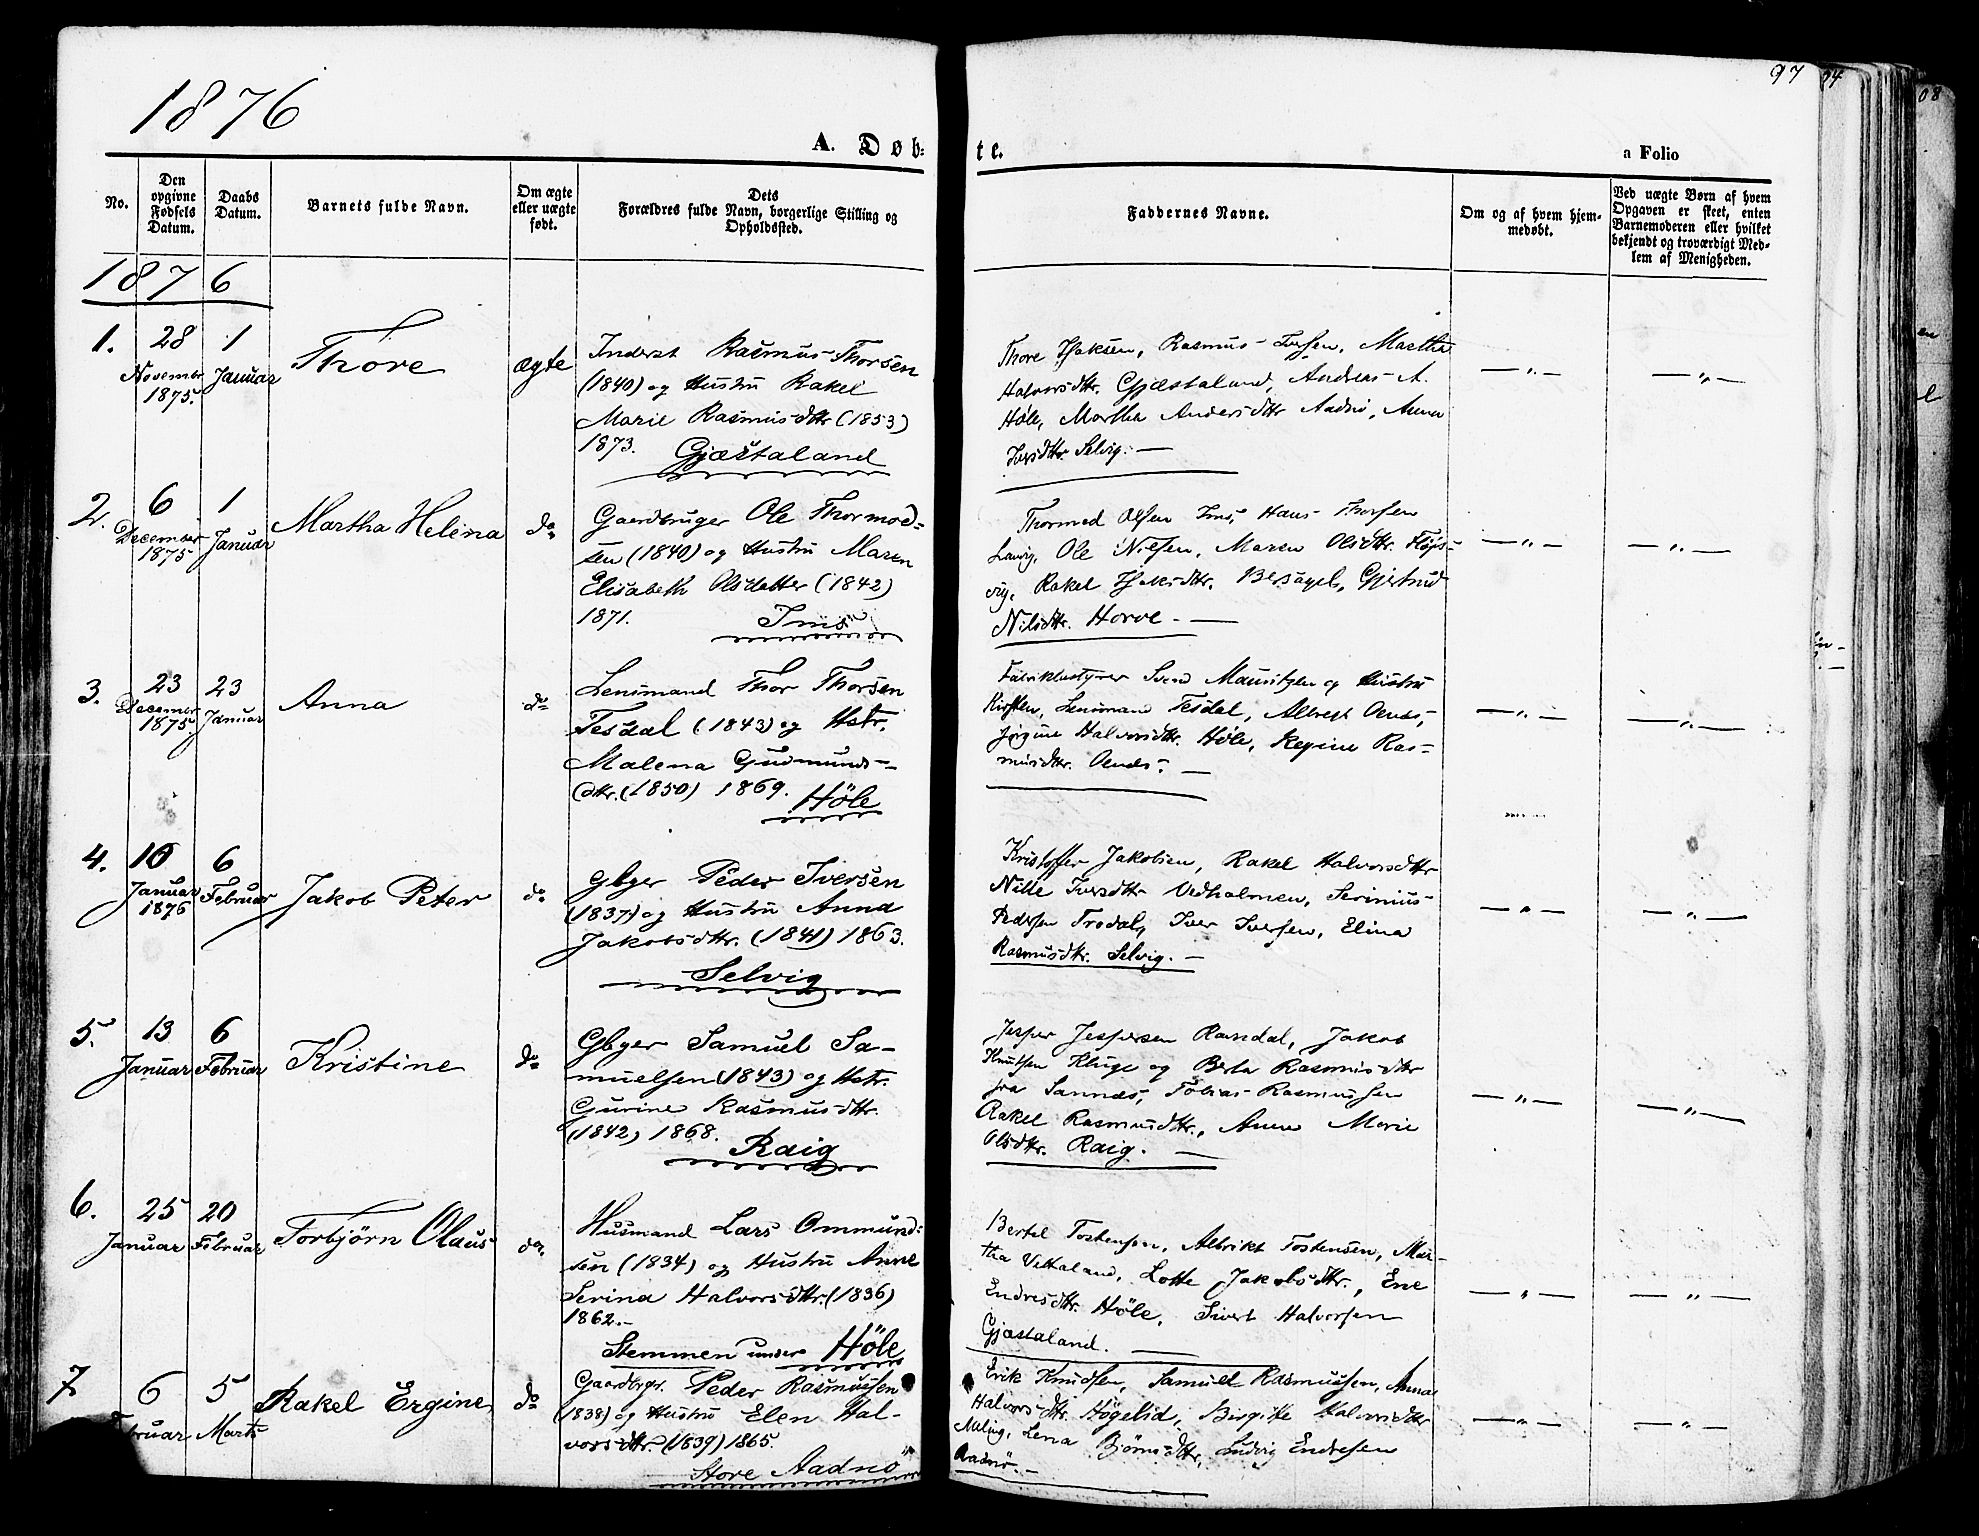 1876
97
94
08
A. Døb-
te.
a Folio
No.
Den opgivne Fødsels Datum.
Daabs Datum.
Barnets fulde Navn.
Om ægte eller uægte født.
Dets Forældres fulde Navn, borgerlige Stilling og Opholdssted.
Faddernes Navne.
Om og af hvem hjemmedøbt.
Ved uægte Børn af hvem Opgaven er skeet, enten Barnemoderen eller hvilket bekjendt og troværdigt Medlem af Menigheden.
1876
1. 28 November 1875. 1 Januar Thore ægte
Inderst Rasmus Thorsen
(1840) og Hustru Rakel
Marie Rasmusdttr (1853)
1873. Gjæstaland
Thore Rasmus Iversen, Martha
Halvorsdttr. Gjæstaland, Andreas A.
Høle, Martha Andersdttr Aadnö, Anna
Iversdttr. Selvig. —
— " — — " —
2. 6 December 1875 1 Januar Martha Helena do
Gaardbruger Ole Thormod-
sen (1840) og Hustru Maren
Elisabeth Olsdatter (1842)
1871. Ims
Thormod Olsen Ims, Hans Thorsen
Ole Nilsen, Maren Olsdttr.
vig, Rakel Bersagel, Gjertrud
Nilsdttr. Horve. —
— " — — " —
3. 23 December 1875. 23 Januar Anna do
Lensmand Thor Thorsen
Tesdal (1843) og Hstr.
Malena Gudmunds-
dttr. (1850) 1869. Höle
Svend Mauritzen og Hustru
Kirsten, Lensmand Tesdal, Albrigt
Jørgine Halvorsdttr. Høle, Regine Ras-
musdttr. —
— " — — " —
4. 10 Januar 1876 6 Februar Jakob Peter do
Gbger Peder Iversen
(1837) og Hustru Anna
Jakobsdttr. (1841) 1863.
Selvig
Kristoffer Jakobsen, Rakel Halvorsdttr
Nille Iversdttr Vedholmen, Serinius
Pedersen Trodal, Iver Iversen, Elina
Rasmusdttr. Selvig. —
— " — — " —
5. 13 Januar 6 Februar Kristine do
Gbger Samuel Sa-
muelsen (1843) og Hstr.
Gurine Rasmusdttr.
(1842) 1868. Raig
Jesper Jespersen Randal, Jakob
Knutsen Kluge og Berta Rasmusdttr
fra Sannæs, Tobias Rasmussen
Rakel Rasmusdttr., Anne Marie
Olsdttr. Raig. —
— " — — " —
6. 25 Januar 20 Februar Torbjörn Olaus do.
Husmand Lars Ommund-
sen (1834) og Hustru Anne
Serina Halvorsdttr. (1836)
1862. —
Stemmen under Höle
Bertel Tostensen, Albrikt Tostensen, Mar-
tha Vettaland, Lotte Jakobsdttr., Ene
Endresdttr. Höle, Sivert Halvorsen
Gjæstaland. —
— " — — " —
7 6 Februar 5 Marts Rakel Ergine do
Gaardbrgr. Peder Rasmussen
(1838) og Hustru Elen Hal-
vorsdttr. (1839) 1865.
Store Aadnö
Erik Knudsen, Samuel Rasmussen, Anna
Halvorsdttr. Høgelid, Birgitte Halvorsdttr
Meling, Lena Bjørnsdttr, Ludvig Endresen
Aadnö. —
— " — — " —